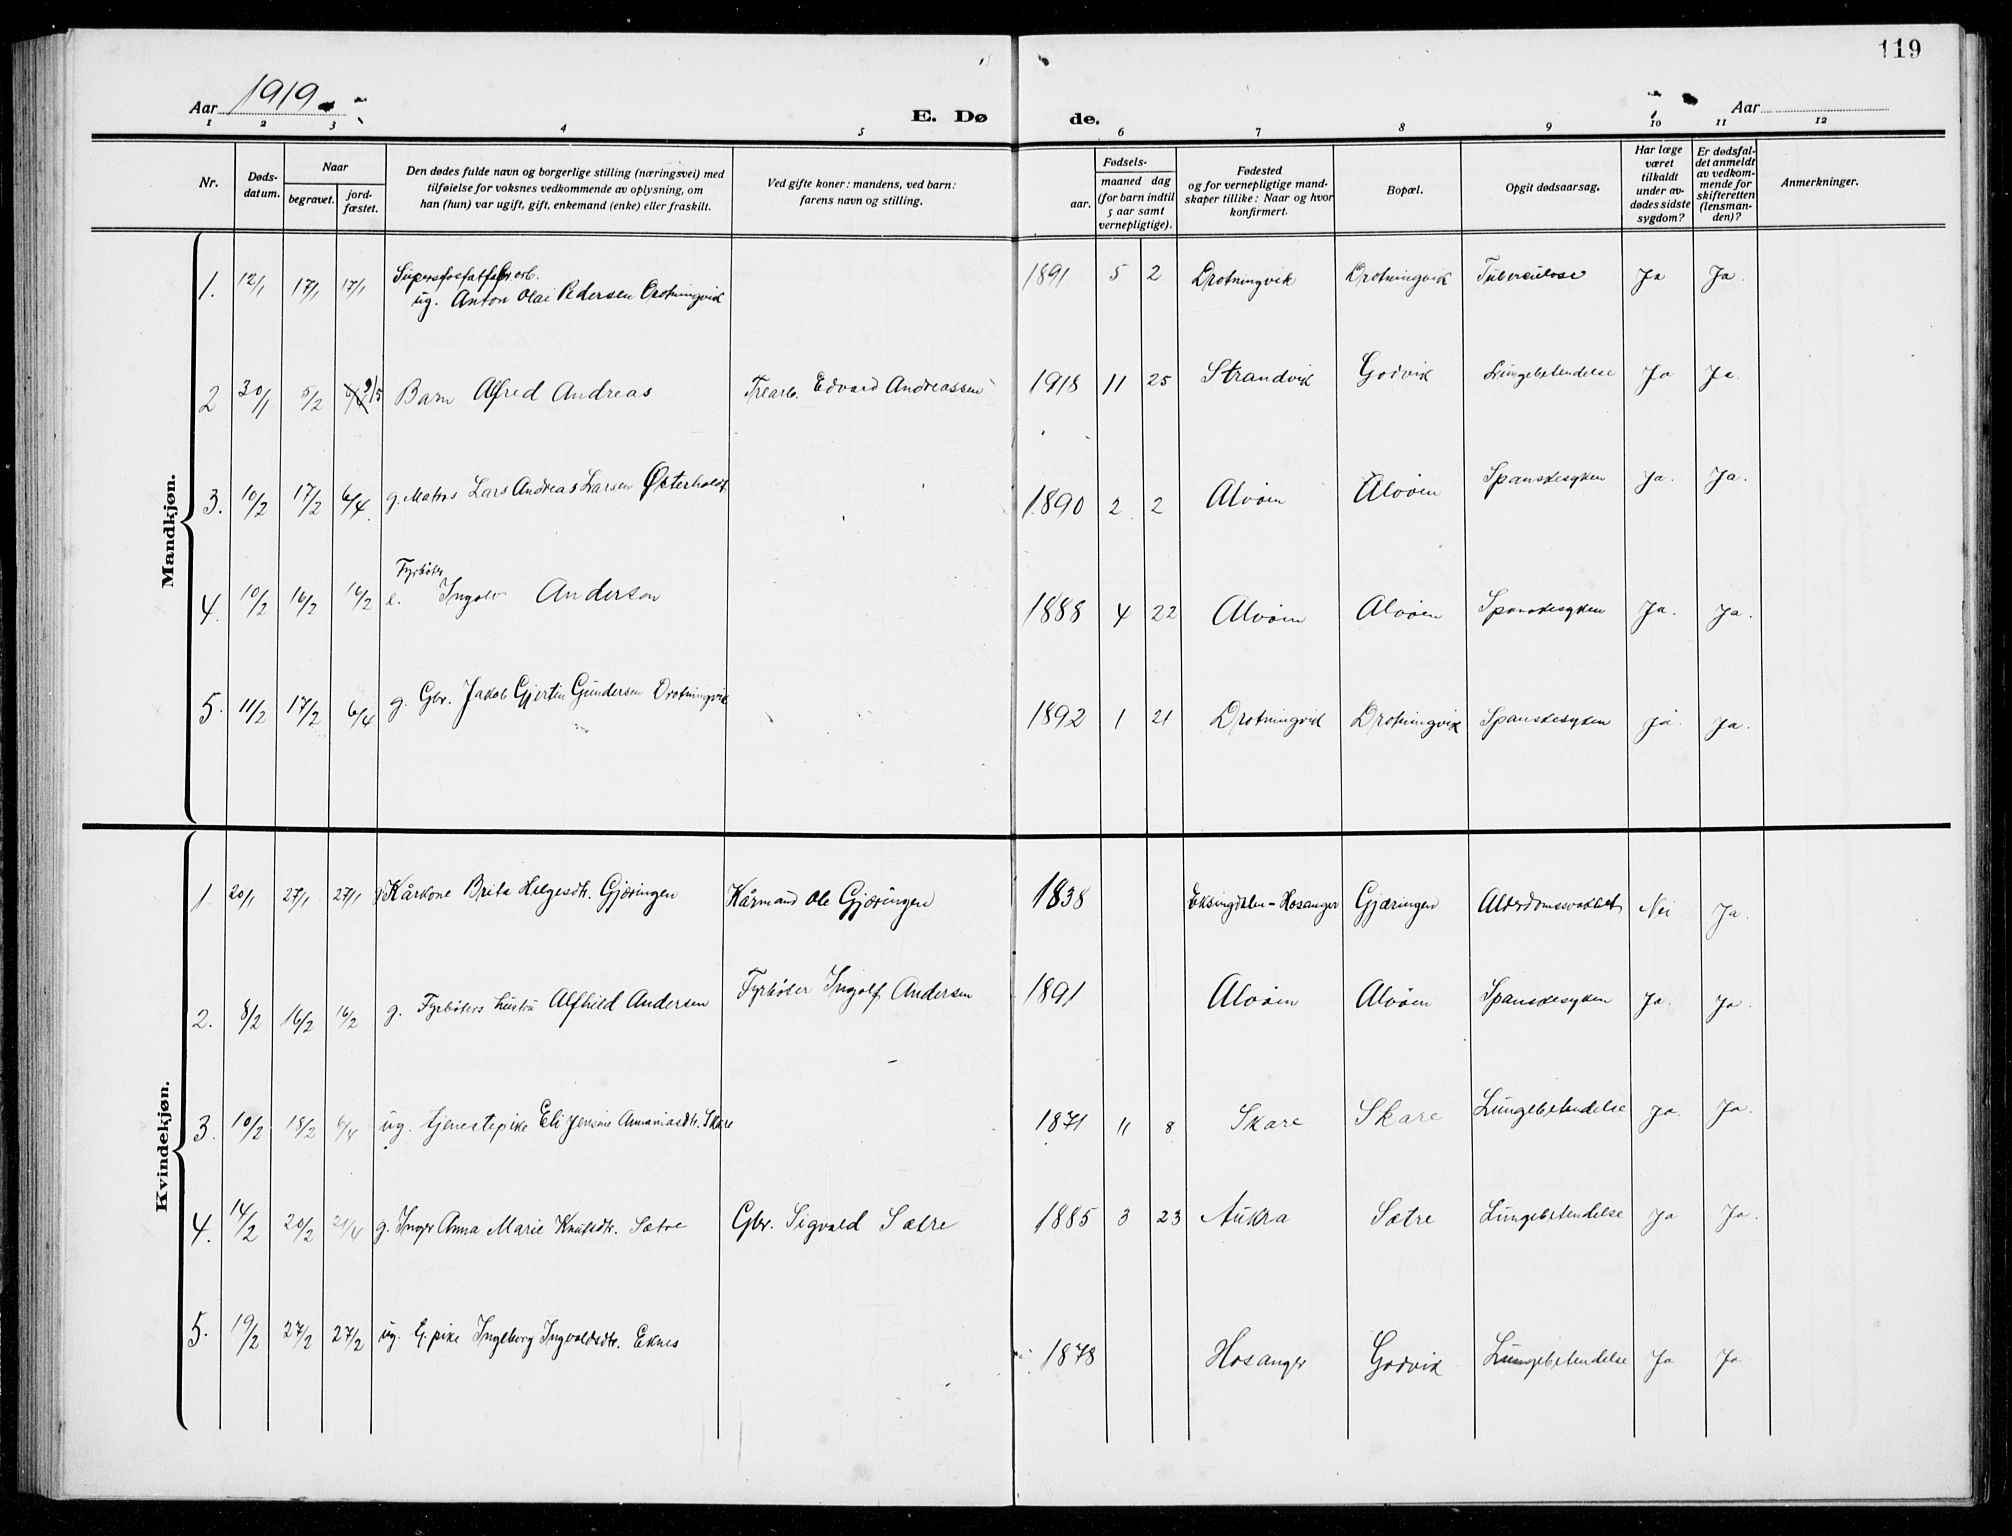 119
Aar 1919. E. Dø de. Aar
1 2 3 4 5 6 7 8 9 10 11 12
Nr.
Døds-
datum.
Naar
begravet.
jord-
fæstet.
Den dødes fulde navn og borgerlige stilling (næringsvei) med
tilføielse for voksnes vedkommende av oplysning, om
han (hun) var ugift, gift, enkemand (enke) eller fraskilt.
Ved gifte koner: mandens, ved barn:
farens navn og stilling.
Fødsels-
aar.
maaned dag
(for barn indtil
5 aar samt
vernepligtige).
Fødested
og for vernepligtige mand-
skaper tillike: Naar og hvor
konfirmert.
Bopæl.
Opgit dødsaarsag.
Har læge
været
tilkaldt
under av-
dødes sidste
sygdom?
Er dødsfal-
det anmeldt
av vedkom-
mende for
skifteretten
(lensman-
den)?
Anmerkninger.
Mandkjøn.
Superfosfatfabr.arb.
1. 12/1 17/1 17/1 ug. Anton Olai Pedersen Drotningvik 1891 5 2 Drotningvik Drotningvik Tuberculose Ja Ja.
2 30/1 5/2 Barn Alfred Andreas Trearb. Edvard Andreassen 1918 11 25 Strandvik Godvik Lungebetendelse Ja Ja.
3. 10/2 17/2 6/4 g. Matros Lars Andreas Larsen Østerholdt 1890 2 2 Alvøen Alvøen Spanskesyken Ja. Ja.
Fyrbøter
4. 10/2 16/2 16/2 e. Ingolv Andersen 1888 4 22 Alvøen Alvøen Spanskesyken Ja. Ja.
5. 11/2 17/2 6/4 g. Gbr. Jakob Gjertin Gundersen Drotningvik 1892 1 21 Drotningvik Drotningvik Spanskesyken Ja. Ja.
Kvindekjøn.
1. 20/1 27/1 27/1 g. Kårkone Brita Helgesdtr. Gjæringen Kårmand Ole Gjæringen 1838 Eksingdalen - Hosanger Gjæringen Alderdomssvakhet Nei Ja.
2. 8/2 16/2 16/2 g. Fyrbøters hustru Alfhild Andersen Fyrbøter Ingolf Andersen 1891 Alvøen Alvøen Spanskesyken Ja. Ja.
3. 10/2 18/2 6/4 ug. tjenestepike Eli Jensine Annaniasdtr. Skare 1871 11 8 Skare Skare Lungebetendelse Ja. Ja.
4. 14/2 20/2 21/4 g. Inger Anna Marie Knutsdtr. Sætre Gbr. Sigvald Sætre 1885 3 23 Aukra Sætre Lungebetendelse Ja Ja.
5. 19/2 27/2 27/2 ug. pike Ingeborg Ingvaldsdtr. Eknes 1878 Hosanger Godvik Lungebetendelse Ja Ja